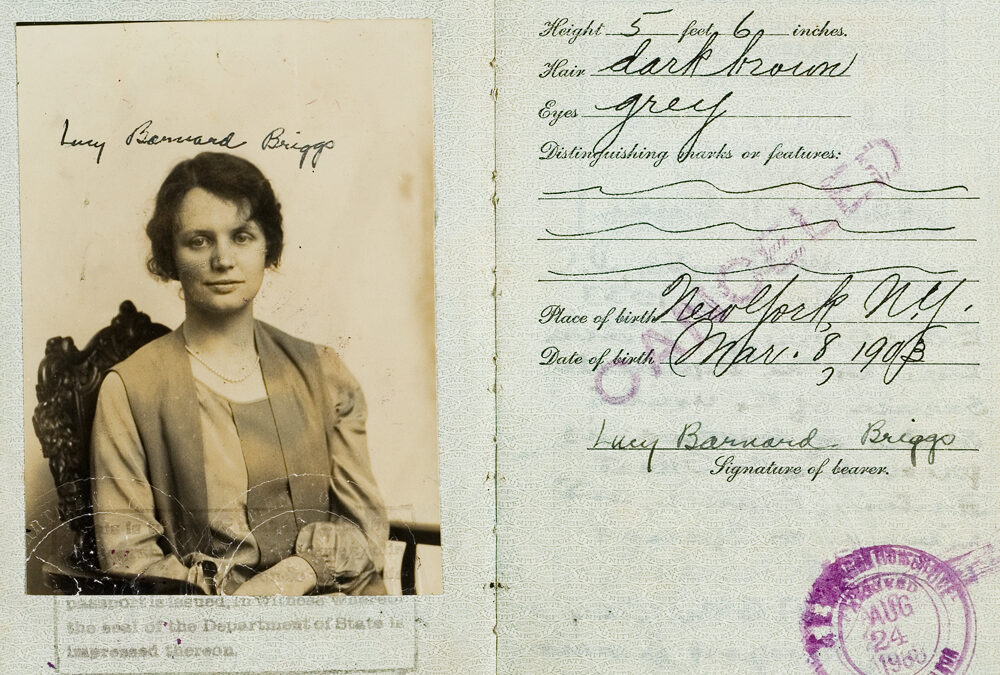 Lucy Barnard Briggs
passport is issued, in witness whereof
the seal of the Department of State is
impressed thereon.
Height 5 feet, 6 inches.
Hair dark brown
Eyes grey
Distinguishing marks or features:
CANCELLED
Place of birth New York, N.Y.
Date of birth Mar. 8, 1903
Lucy Barnard Briggs
Signature of bearer.
AUG
24